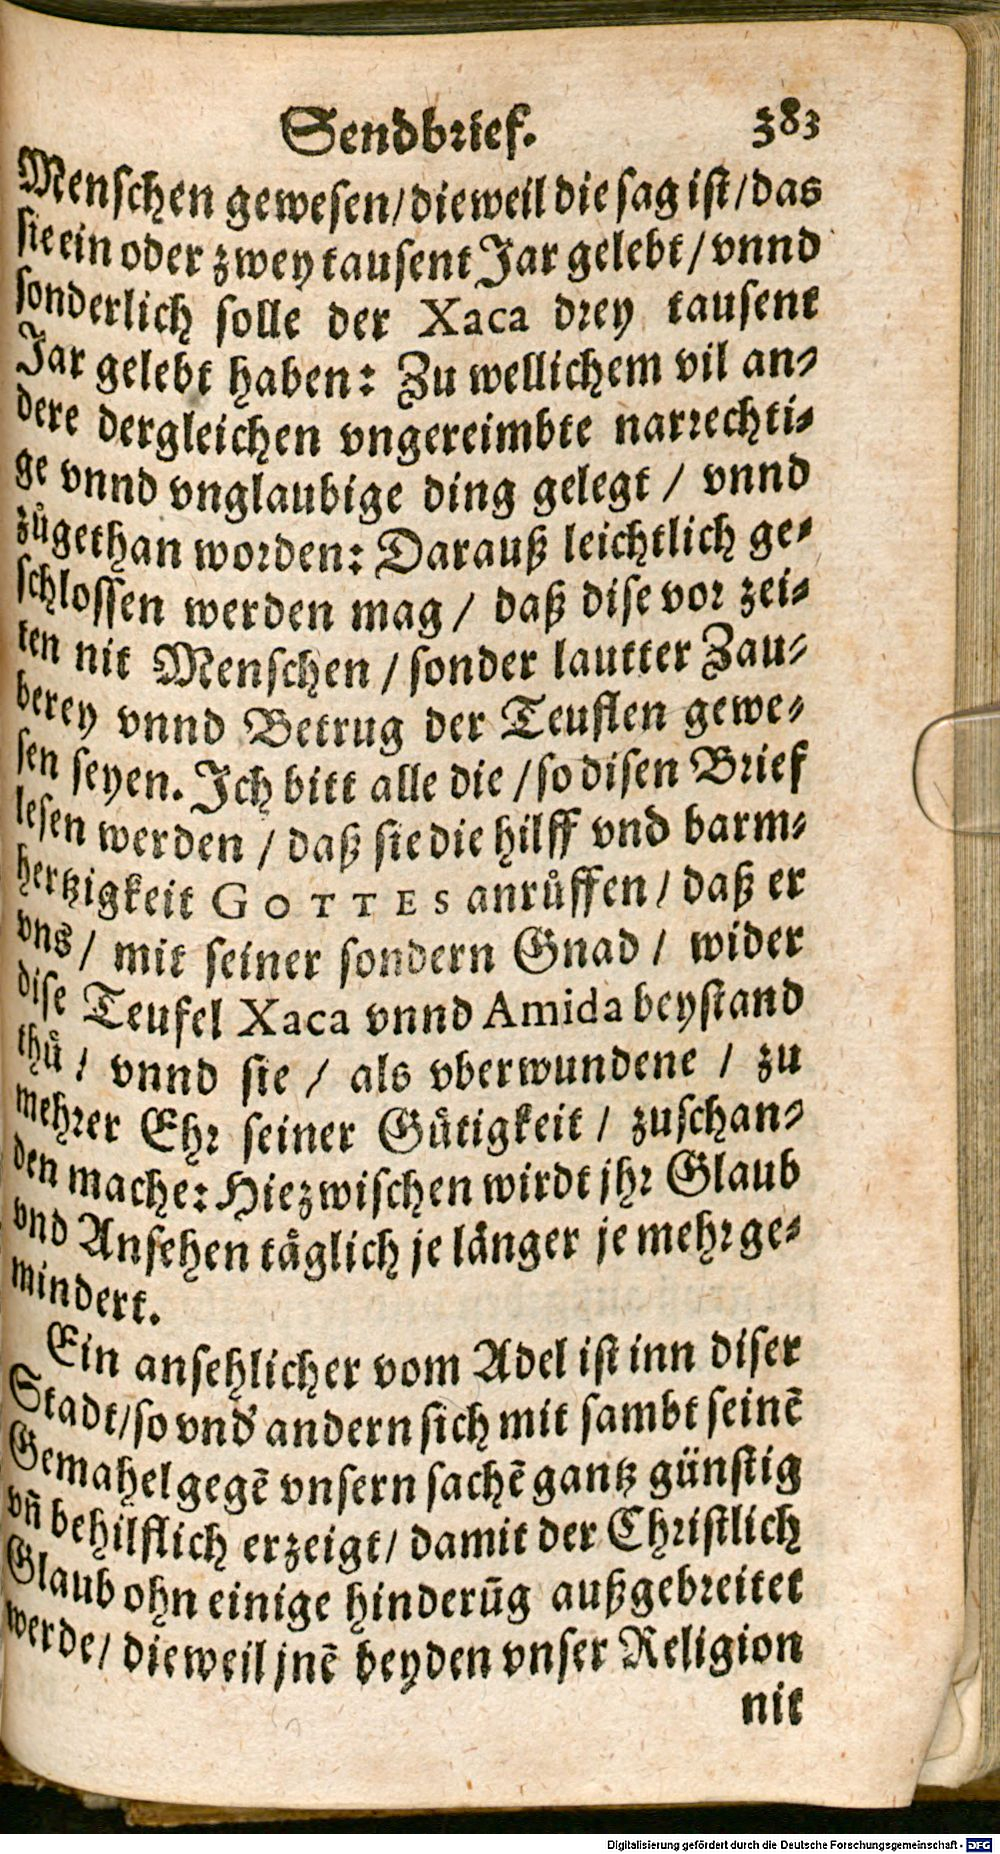 Sendbrief. 383
Menſchen geweſen/ dieweil die ſag iſt/ das
ſie ein oder zwey tauſent Jar gelebt/ vnnd
ſonderlich ſolle der Xaca drey tauſent
Jar gelebt haben: Zu wellichem vil an⸗
dere dergleichen vngereimbte narrechti⸗
ge vnnd vnglaubige ding gelegt / vnnd
zůgethan worden: Darauß leichtlich ge⸗
ſchloſſen werden mag / daß diſe vor zei⸗
ten nit Menſchen / ſonder lautter Zau⸗
berey vnnd Betrug der Teuflen gewe⸗
ſen ſeyen. Ich bitt alle die / ſo diſen Brief
leſen werden / daß ſie die hilff vnd barm⸗
hertzigkeit GOTTES anrůffen / daß er
vns / mit ſeiner ſondern Gnad / wider
diſe Teufel Xaca vnnd Amida beyſtand
thů / vnnd ſie / als vberwundene / zu
mehrer Ehr ſeiner Gůtigkeit / zuſchan⸗
den mache: Hiezwiſchen wirdt jhr Glaub
vnd Anſehen tåglich je långer je mehr ge⸗
mindert.
Ein anſehlicher vom Adel iſt inn diſer
Stadt/ ſo vnd' andern ſich mit ſambt ſeinē
Gemahel gegē vnſern ſachē gantz günſtig
vñ behilflich erzeigt/ damit der Chriſtlich
Glaub ohn einige hinderūg außgebreitet
werde/ dieweil jnē beyden vnſer Religion
nit
Digitalisierung gefördert durch die Deutsche Forschungsgemeinschaft - DFG